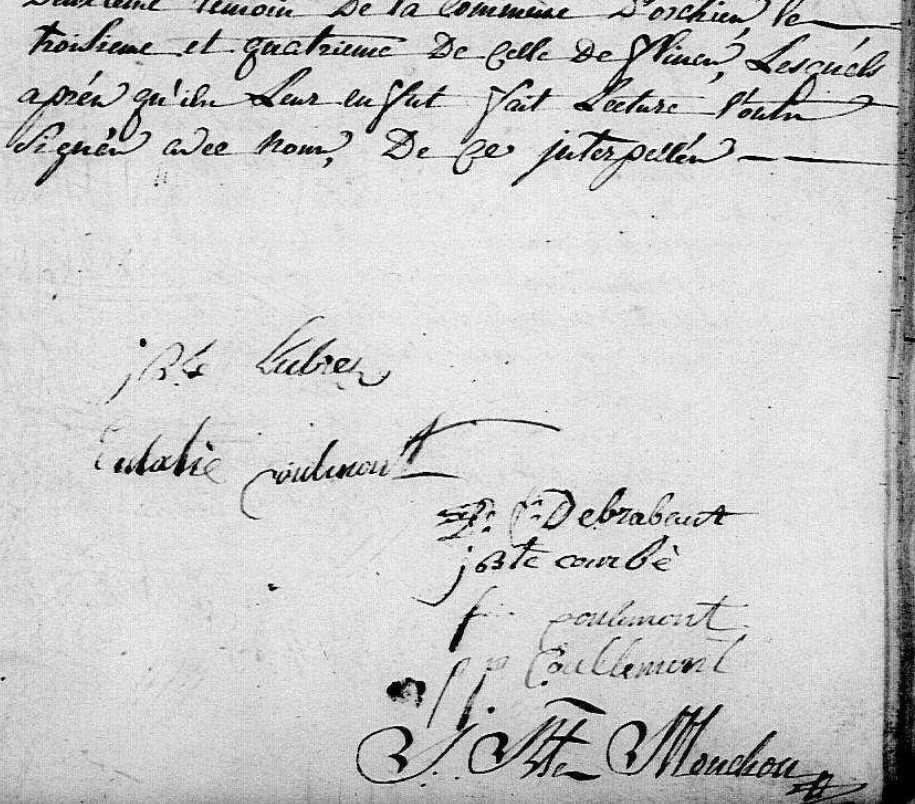 Deuxieme temoin De la Commune D'orchien, le
troisieme et quatrieme De Celle De flinen, Lesquels
aprèn qu'ilen Leur en fut fait Lecture l'ouln
Signén avec nous, De Ce jnterpellén
jBte Lubrez
Eulalie Coulmont
Debrabant
jBte courbè
f coulemont
Coullemont
J. Bte Mouchon